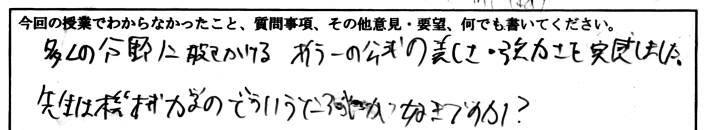 今回の授業でわからなかったこと、質問事項、その他意見・要望、何でも書いてください。
多くの分野に股をかける オイラーの公式の美しさ・強力さを実感しました。
先生は機械力学のどういうところが好きですか?